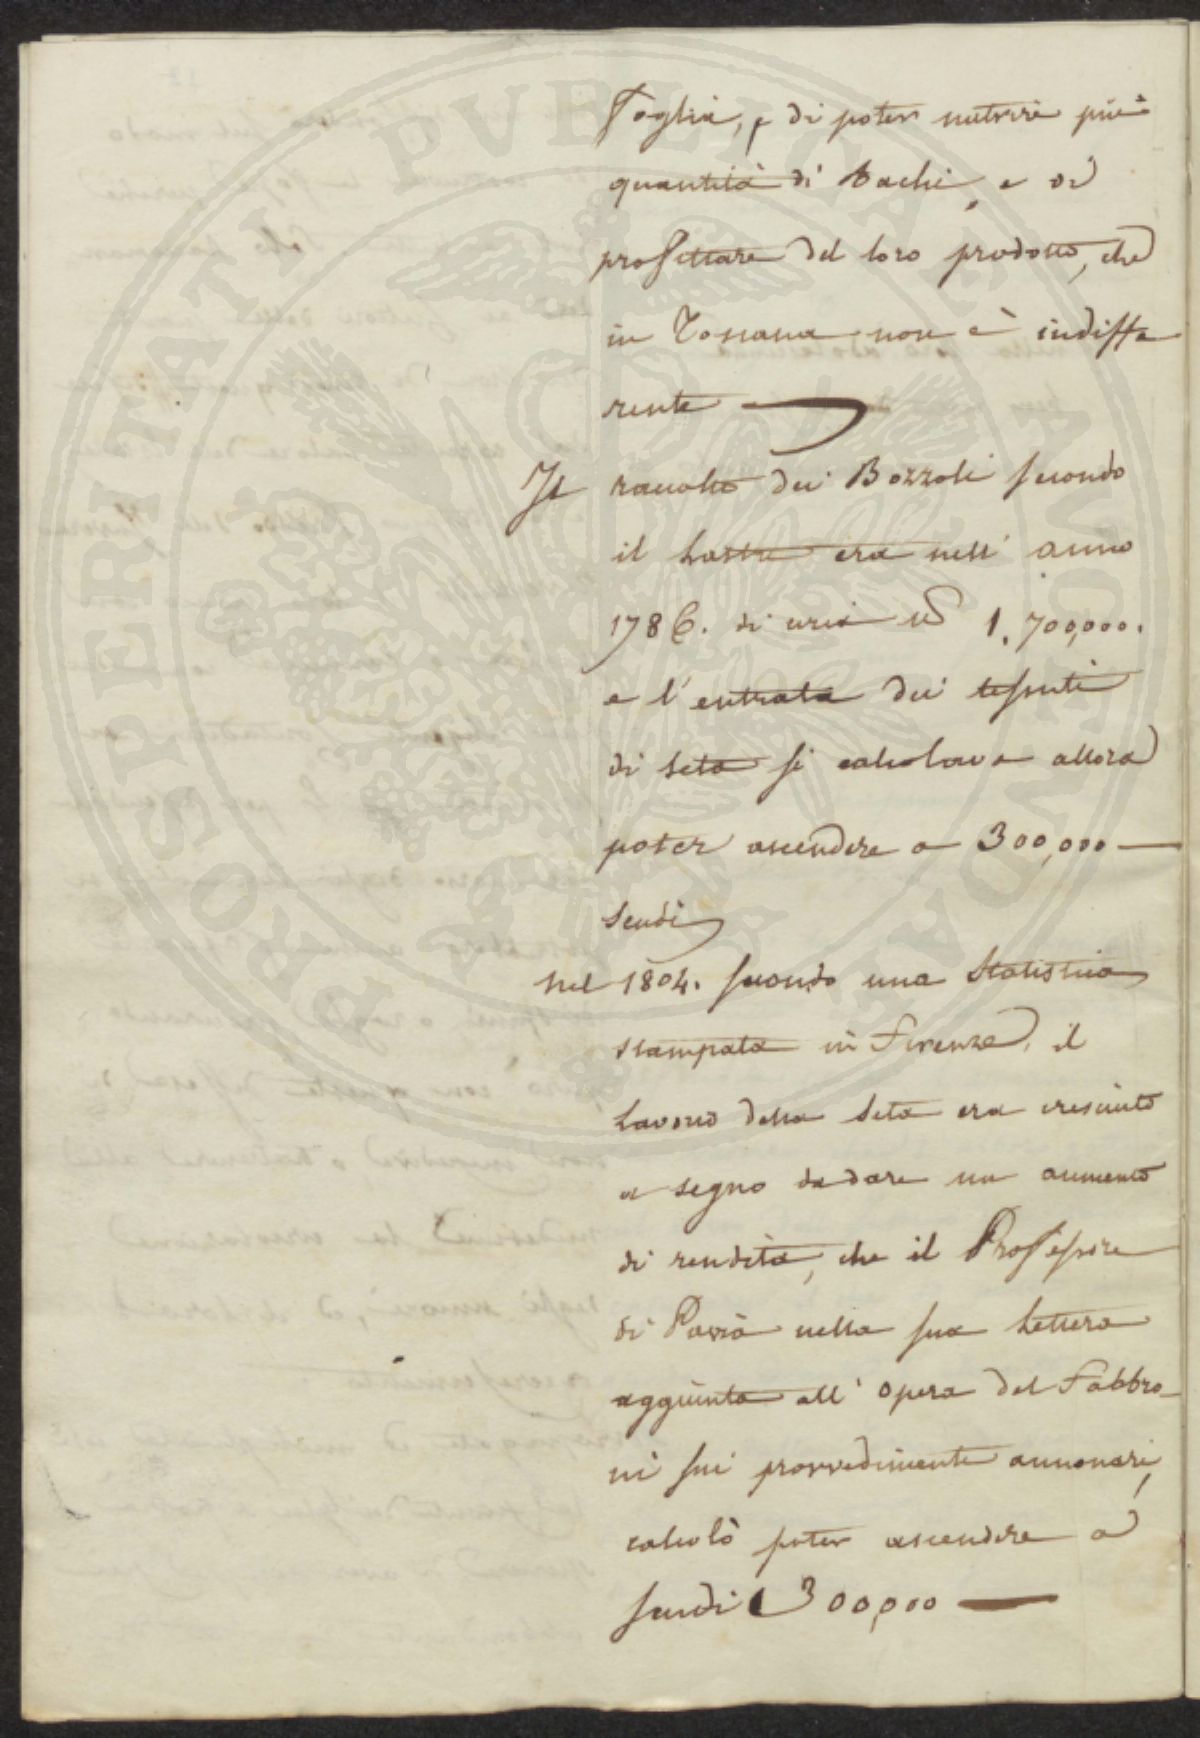 Foglia, e di poter nutrire più
quantità di Bachi, e di
profittare del loro prodotto, che
in Toscana non è indiffe
rente
Il raccolto dei Bozzoli secondo
il Lastri era nell' anno
1786. di circa 1,700,000.
e l'entrata dei tessuti
di seta si calcolava allora
poter ascendere a 300,000
Scudi
Nel 1804. secondo una Statistica
stampata in Firenze, il
Lavoro della Seta era cresciuto
a segno da dare un aumento
di rendita, che il Professore
di Pavia nella sua Lettera
aggiunta all' opera del Fabbro-
ni sui provvedimenti annonari,
calcolò poter ascendere a
scudi 300,000
PROSPERITATI PVBLICAE AVGENDAE